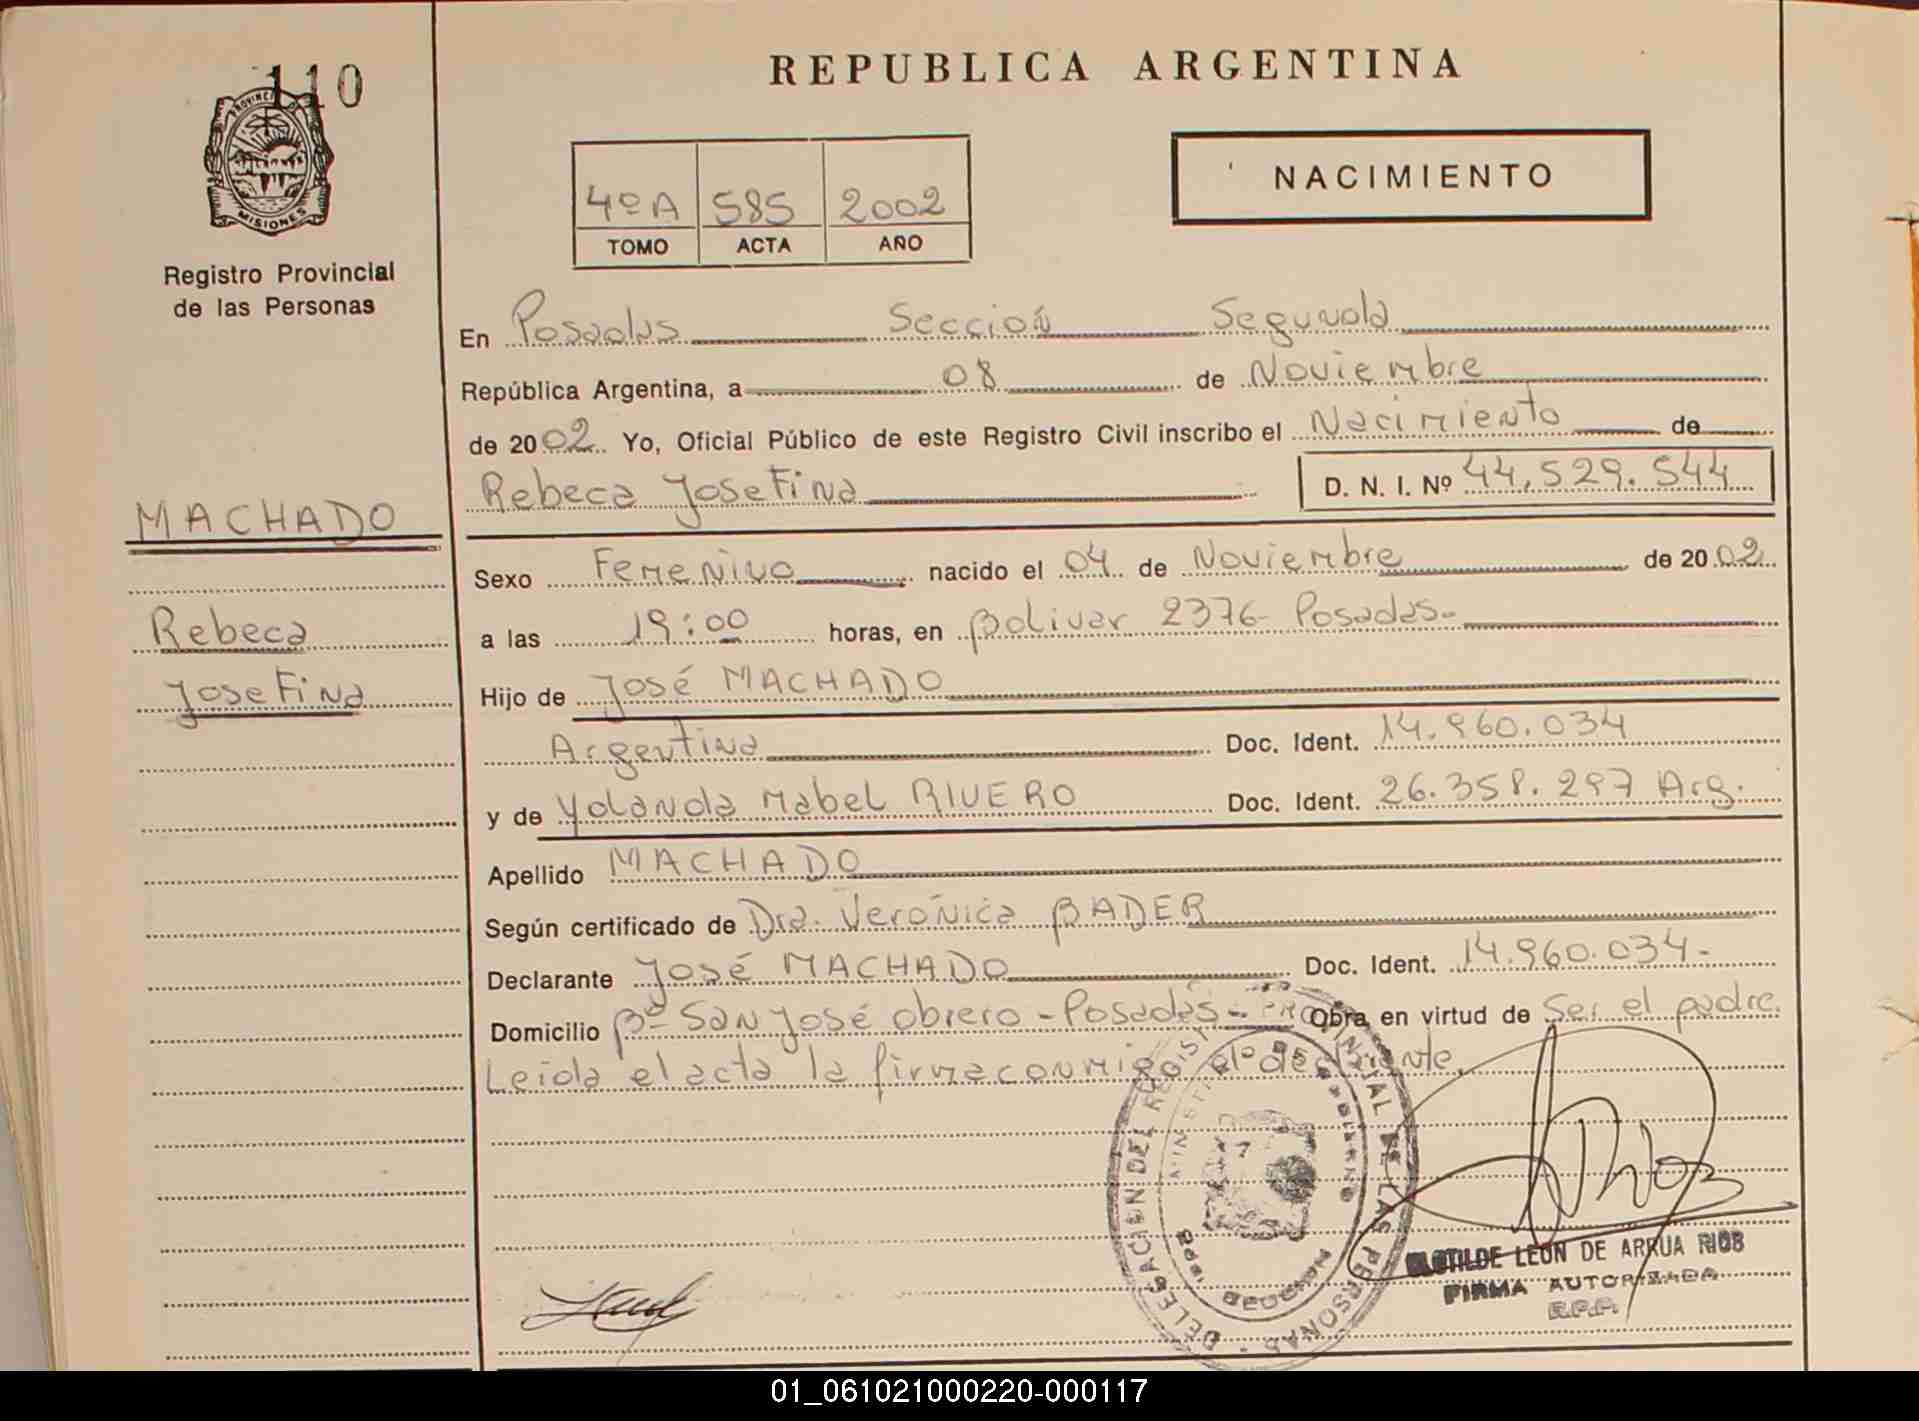 110
REPUBLICA ARGENTINA
PROVINCIA
MISIONES
Registro Provincial
de las Personas
4º A 585 2002
TOMO ACTA AÑO
NACIMIENTO
En Posadas Sección Segunda
República Argentina, a 08 de Noviembre
de 2002 Yo, Oficial Público de este Registro Civil inscribo el Nacimiento de
Rebeca Josefina D. N. I. Nº 44.529.544
MACHADO
Rebeca
Josefina
Sexo Femenino nacido el 04 de Noviembre de 2002
a las 19:00 horas, en Bolivar 2376 - Posadas -
Hijo de José MACHADO
Argentina Doc. Ident. 14.960.034
y de Yolanda Mabel RIVERO Doc. Ident. 26.358.297 Arg.
Apellido MACHADO
Según certificado de Dra. Verónica BADER
Declarante José MACHADO Doc. Ident. 14.960.034 -
Domicilio Bº San José obrero - Posadas - Obra en virtud de Ser el padre.
Leida el acta la firma conmigo el declarante.
DELEGACION DEL REGISTRO PROVINCIAL DE LAS PERSONAS
CLOTILDE LEON DE ARRUA RIOS
FIRMA AUTORIZADA
R.P.P.
01_061021000220-000117